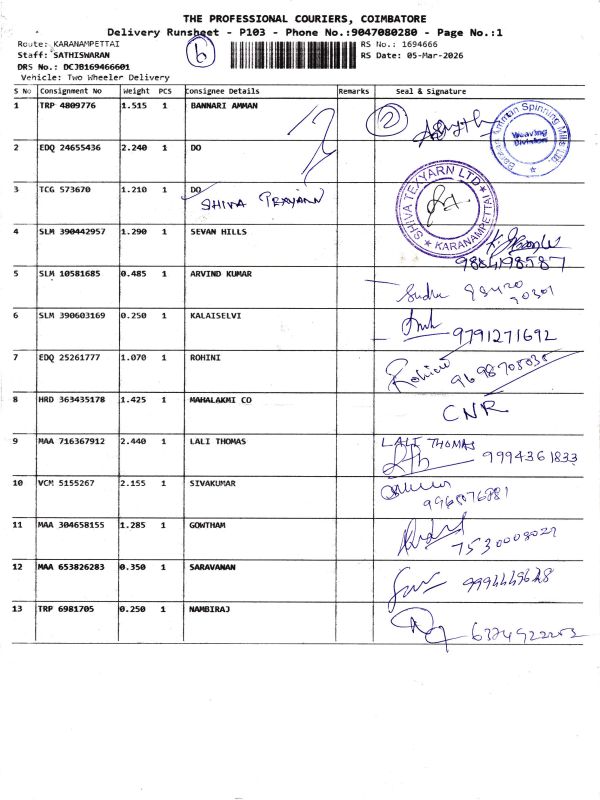 THE PROFESSIONAL COURIERS, COIMBATORE
Delivery Runsheet - P103 - Phone No.:9047080280 - Page No.:1
Route: KARANAMPETTAI RS No.: 1694666
Staff: SATHISWARAN RS Date: 05-Mar-2026
DRS No.: DCJB169466601
Vehicle: Two Wheeler Delivery
6
S No Consignment No Weight PCS Consignee Details Remarks Seal & Signature
1 TRP 4809776 1.515 1 BANNARI AMMAN 2
Bannari Amman Spinning Mills Ltd.
Weaving Division
2 EDQ 24655436 2.240 1 DO
3 TCG 573670 1.210 1 DO
SHIVA
SHIVA TEXYARN LTD
KARANAMPETTAI
4 SLM 390442957 1.290 1 SEVAN HILLS
9884198587
5 SLM 10581685 0.485 1 ARVIND KUMAR
6 SLM 390603169 0.250 1 KALAISELVI 9791271692
7 EDQ 25261777 1.070 1 ROHINI Rohini 9698705035
8 HRD 363435178 1.425 1 MAHALAKMI CO CNR
9 MAA 716367912 2.440 1 LALI THOMAS LALI THOMAS
9994361833
10 VCM 5155267 2.155 1 SIVAKUMAR
11 MAA 304658155 1.285 1 GOWTHAM
12 MAA 653826283 0.350 1 SARAVANAN
13 TRP 6981705 0.250 1 NAMBIRAJ